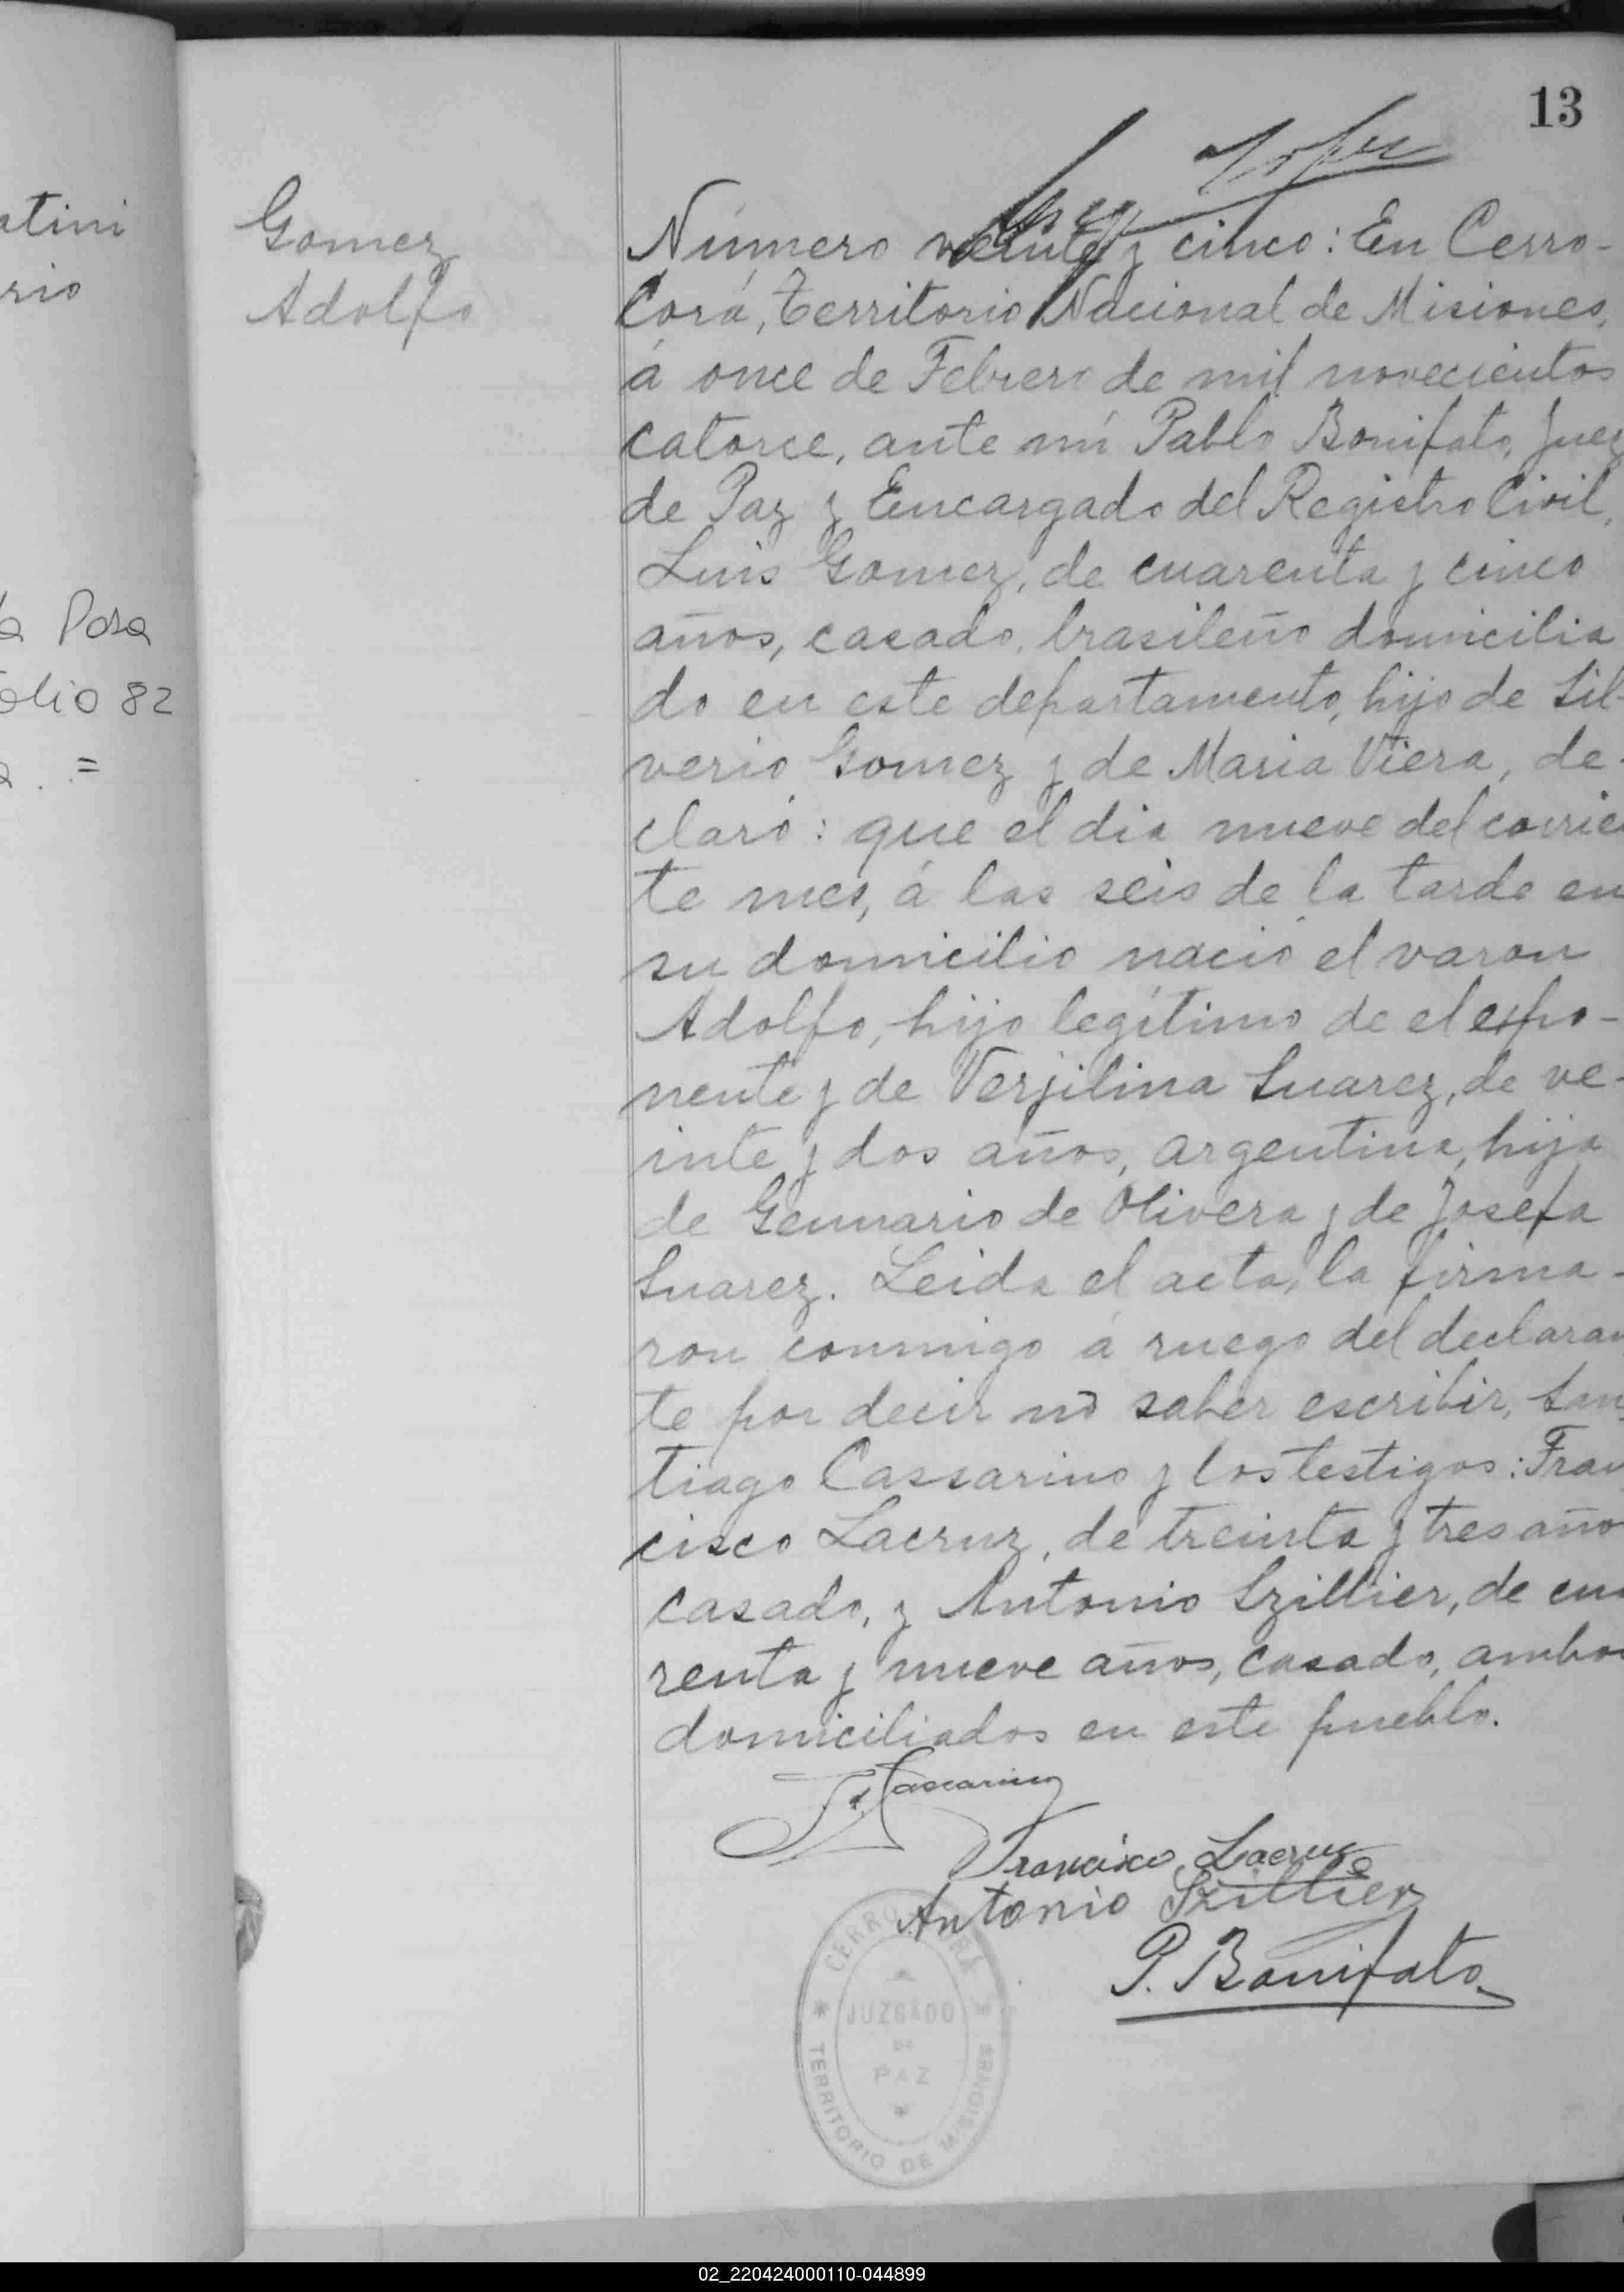 13
atini
rio
a Posa
olio 82
a . =
Gomez
Adolfo
Número veinte y cinco: En Cerro-
Corá, Territorio Nacional de Misiones,
á once de Febrero de mil novecientos
catorce, ante mí Pablo Bonifato, Juez
de Paz y Encargado del Registro Civil,
Luis Gomez, de cuarenta y cinco
años, casado, brasileño domicilia
do en este departamento, hijo de Sil-
verio Gomez y de Maria Viera, de-
claró: que el dia nueve del corrie
te mes, á las seis de la tarde en
su domicilio nació el varon
Adolfo, hijo legítimo de el expo-
nente y de Verjilina Suarez, de ve-
inte y dos años, argentina, hija
de Gennario de Olivera y de Josefa
Suarez. Leida el acta, la firma-
ron conmigo á ruego del declaran
te por decir no saber escribir, San
tiago Cassarino y los testigos: Fran
cisco Lacruz, de treinta y tres año
casado, y Antonio Szillier, de cua
renta y nueve años, casado, ambos
domiciliados en este pueblo.
S. Cascarino
Francisco Lacruz
Antonio Szillier
P. Bonifato
CERRO CORÁ
JUZGADO
DE
PAZ
TERRITORIO DE MISIONES
02_220424000110-044899